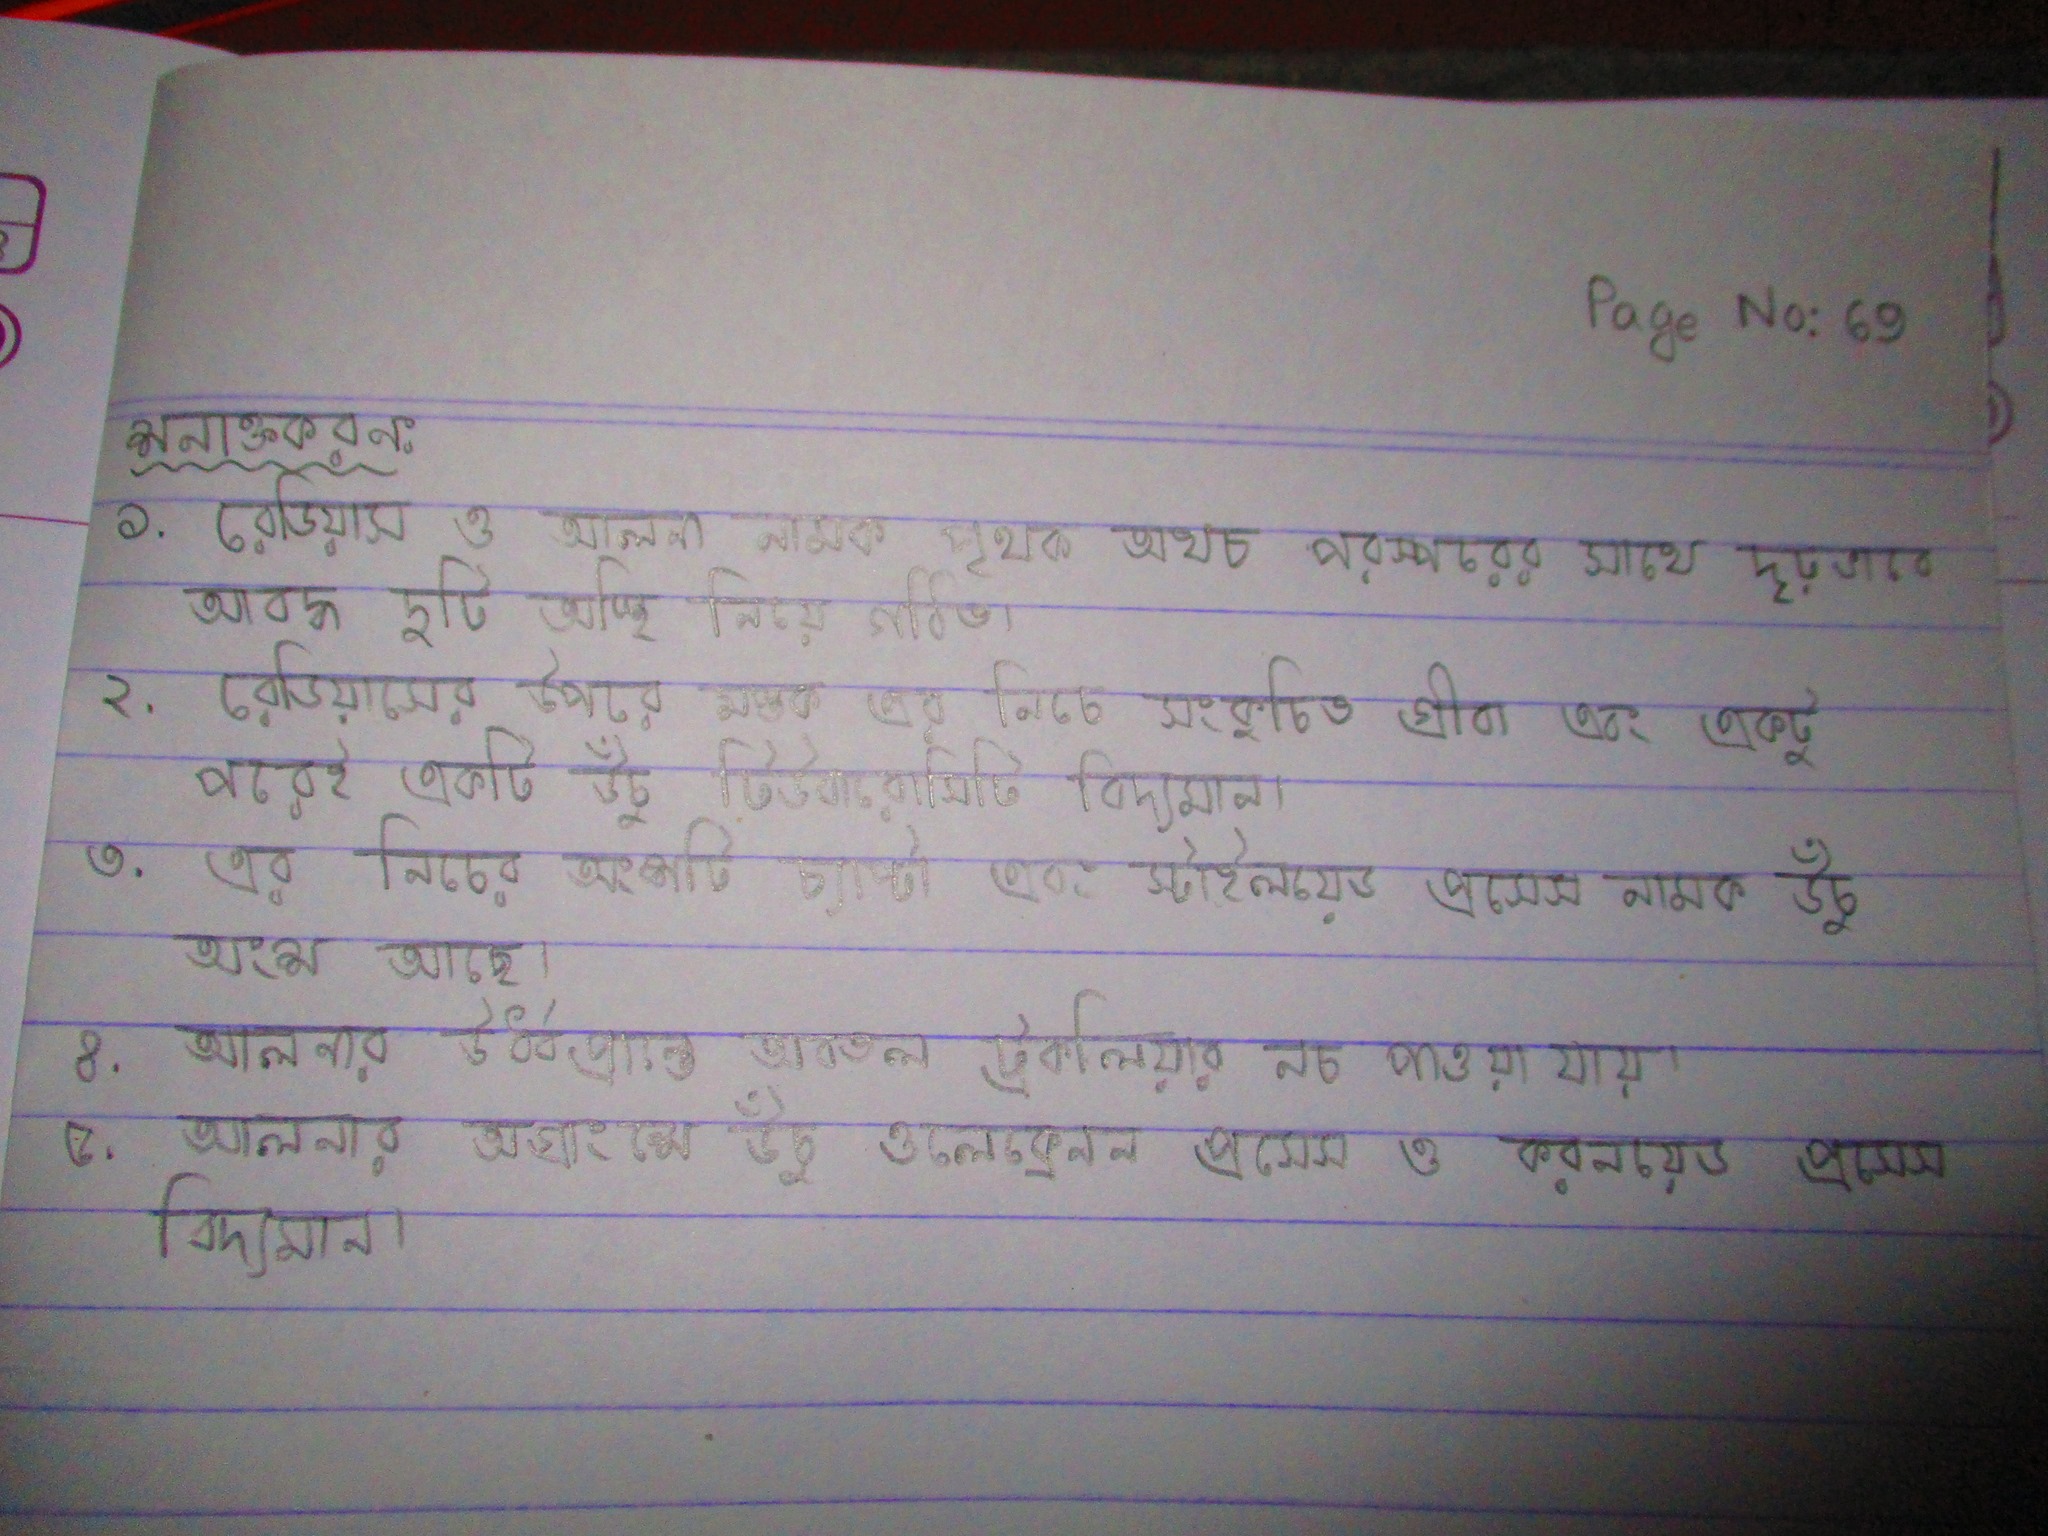 Page No: 69
শনাক্তকরনঃ
১. রেডিয়াস ও আলনা নামক পৃথক অথচ পরস্পরের সাথে দৃঢ়ভাবে
আবদ্ধ দুটি অস্থি নিয়ে গঠিত।
২. রেডিয়াসের উপরে মস্তক এর নিচে সংকুচিত গ্রীবা এবং একটু
পরেই একটি উঁচু টিউবারোসিটি বিদ্যমান।
৩. এর নিচের অংশটি চ্যাপ্টা এবং স্টাইলয়েড প্রসেস নামক উঁচু
অংশ আছে।
৪. আলনার উর্ধ্বপ্রান্তে অবতল ট্রকলিয়ার নচ পাওয়া যায়।
৫. আলনার অগ্রাংশে উঁচু ওলেক্রেনন প্রসেস ও করনয়েড প্রসেস
বিদ্যমান।